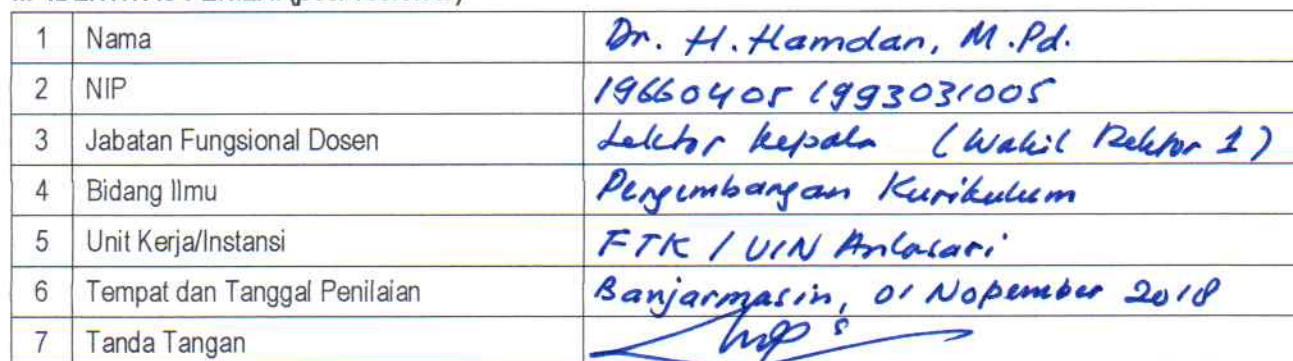 1 Nama Dr. H. Hamdan, M.Pd.
2 NIP 19660405 1993031005
3 Jabatan Fungsional Dosen Lektor Kepala (Wakil Rektor 1)
4 Bidang Ilmu Pengembangan Kurikulum
5 Unit Kerja/Instansi FTK / UIN Antasari
6 Tempat dan Tanggal Penilaian Banjarmasin, 01 Nopember 2018
7 Tanda Tangan